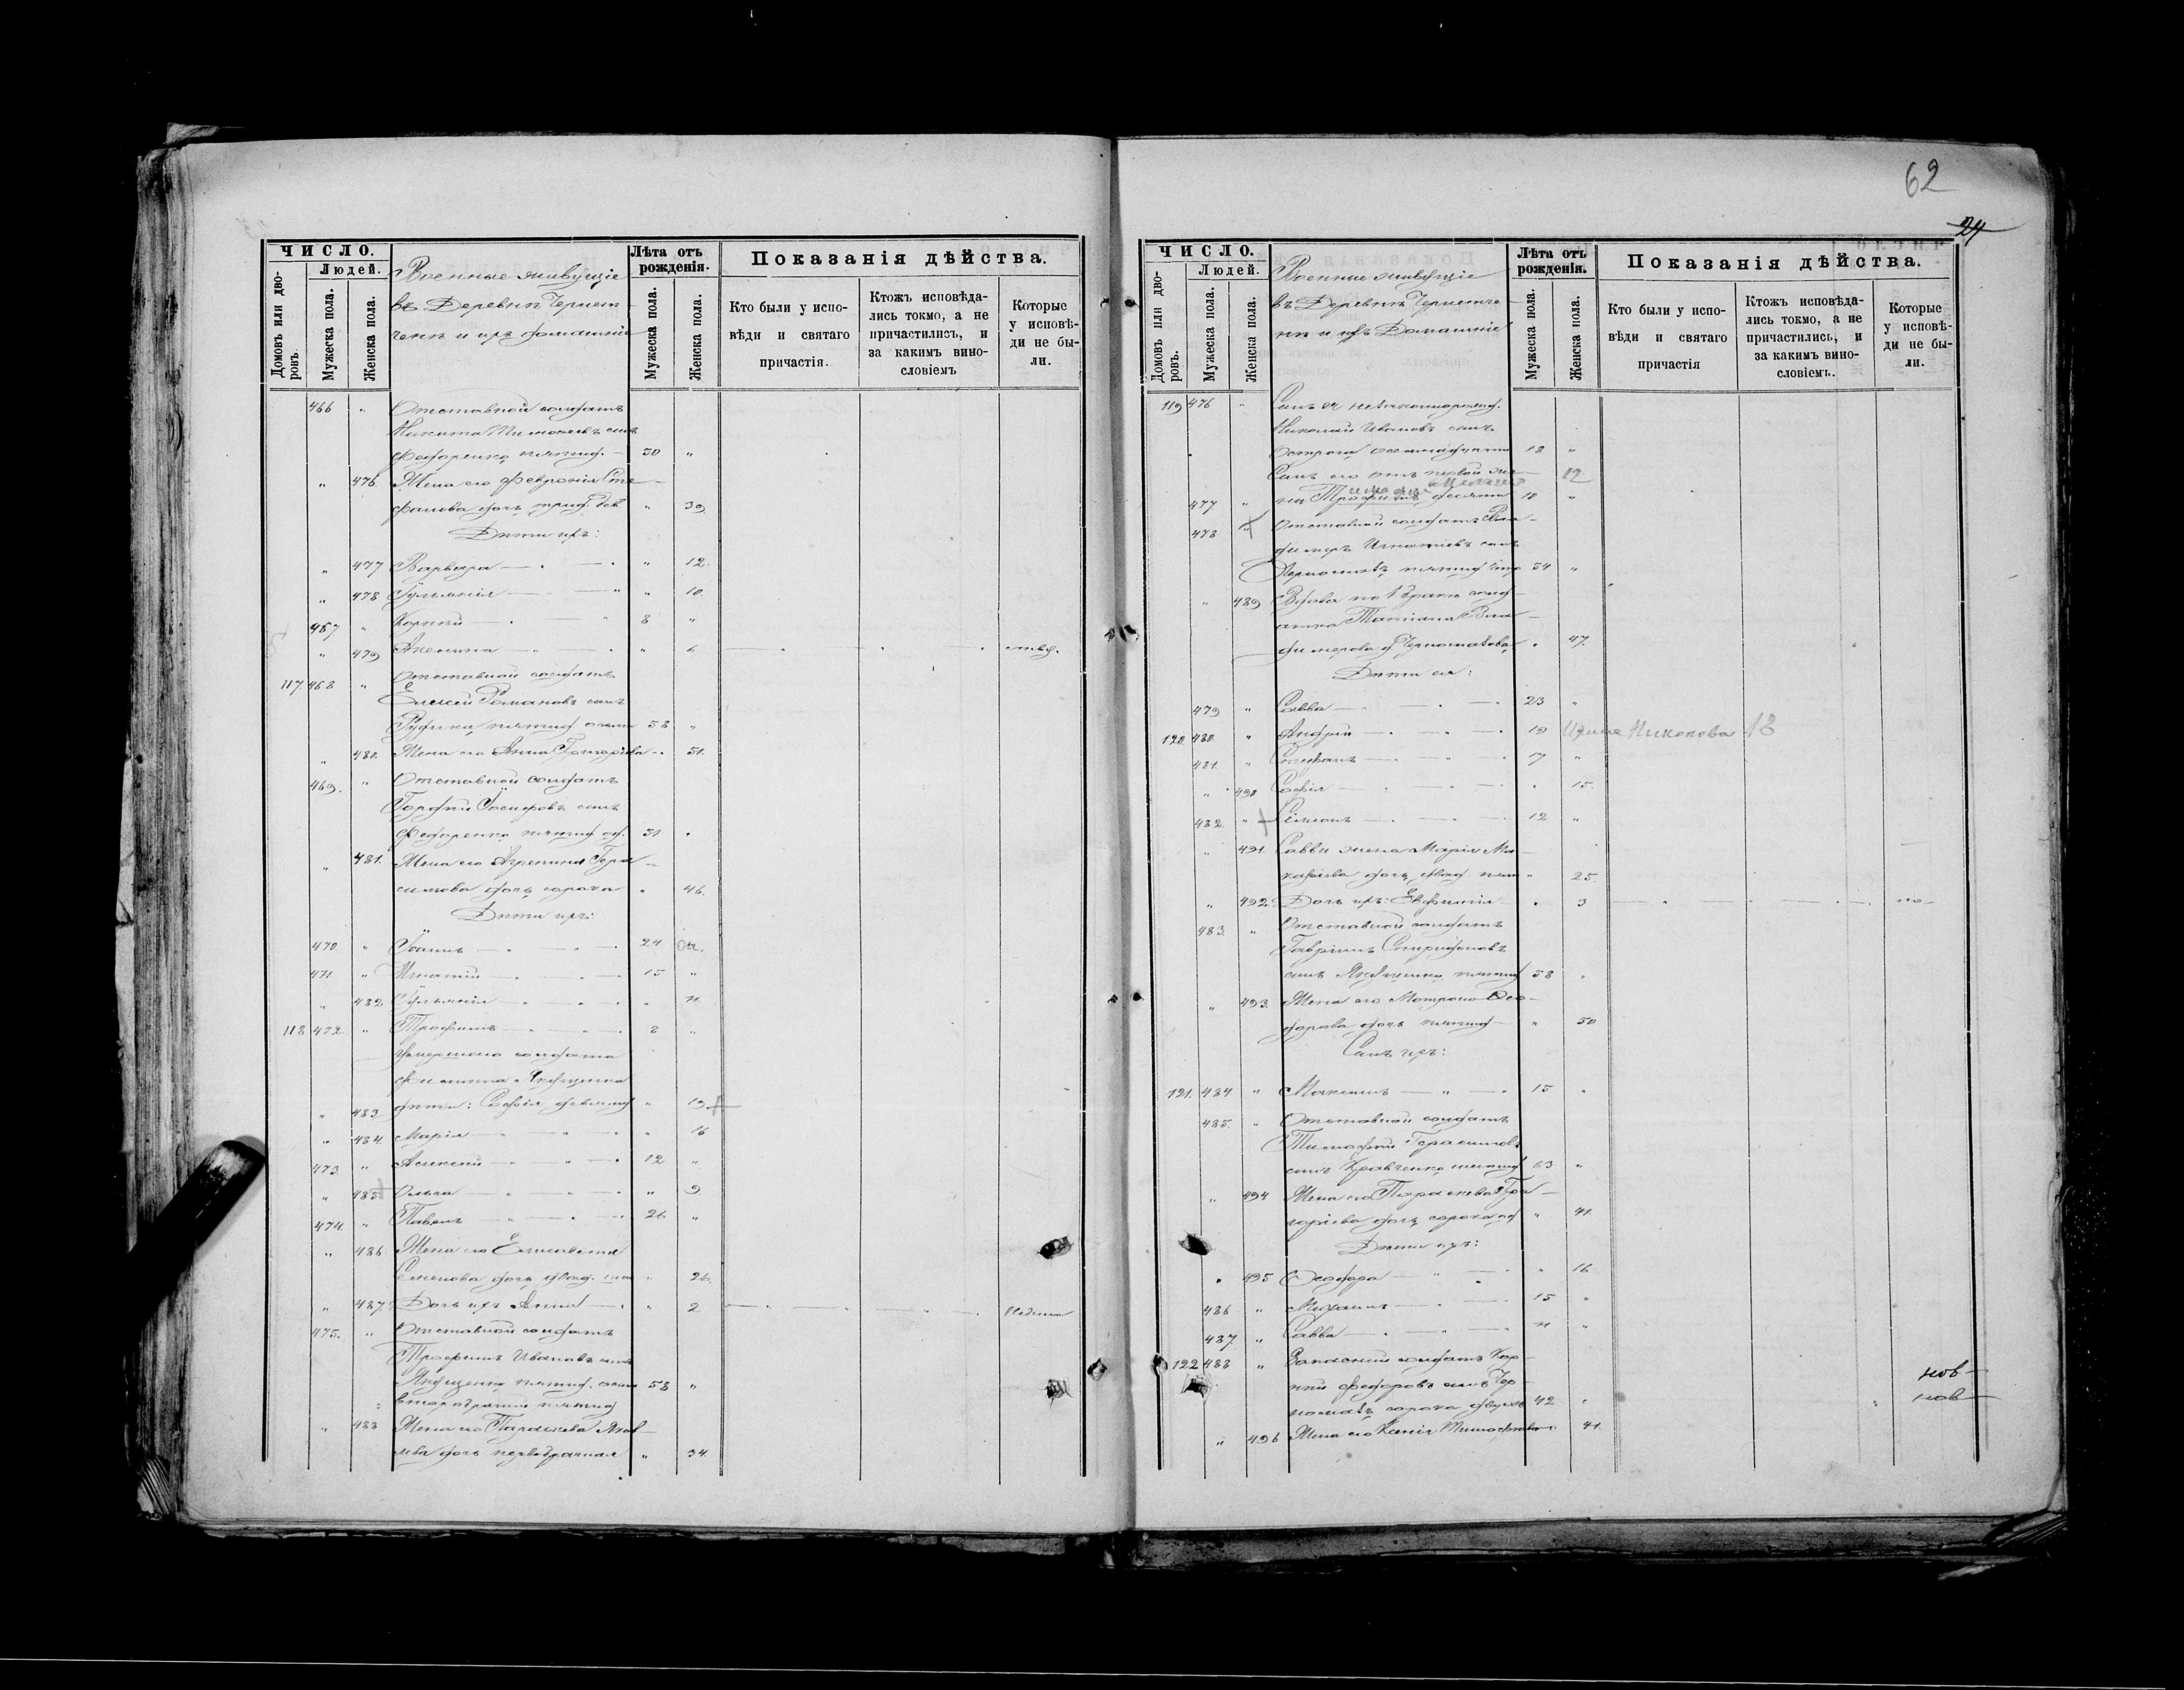 62
24
ЧИСЛО.
Людей.
Домовъ или дворовъ.
Мужеска пола.
Женска пола.
Военные живущіе
въ Деревни Чернет-
чени и ихъ домашніе
Лѣта отъ рожденія.
Мужеска пола.
Женска пола.
Показанія дѣйства.
Кто были у исповѣди и святаго причастія.
Ктожъ исповѣдались токмо, а не причастились, и за какимъ винословіемъ
Которые у исповѣди не были.
466 " Отставной солдатъ
Никита Тимофеевъ сынъ
Федоренко пятид. 50 "
" 476 Жена его Феврония Сте-
фанова дочь трид. дев " 39
Дѣти ихъ:
" 477 Варвара " 12.
" 478 Іуліянія " 10.
467 " Корній 8 "
" 479 Акелина " 6
117. 468 " Отставной солдатъ
Елисей Романовъ сынъ
58 "
" 480. Жена его Анна Григорiева " 51.
469. " Отставной солдатъ
Гордѣй Іосифовъ сынъ
Федоренко пятид од. 51 "
" 481. Жена его Агрепина Гера-
симова дочь сорока " 46.
Дѣти ихъ:
470 " Іоаннъ 24
471. " Игнатій 15 "
" 482. Іуліянія " 11.
118 472. " Трофимъ 8 "
Умершаго солдата
Филиппа Якущенка
" 483 дѣти: Софія девятнад " 19
" 484. Марія " 16
473. " Алексѣй 12 "
" 485 Ольга " 9
474. " Павелъ 26 "
" 486 Жена его Елисавета
Семенова дочь двад. шес " 26.
" 487. Дочь ихъ Анна " 2
475. " Отставной солдатъ
Трофимъ Ивановъ сынъ
Якущенко пятид. осьм 58 "
второбрачный
" 488 Жена его Параскева Яков-
лева дочь первобрачная " 34.
ЧИСЛО.
Людей.
Домовъ или дворовъ.
Мужеска пола.
Женска пола.
Военные живущіе
въ Деревни Чернетче-
ни и ихъ Домашніе
Лѣта отъ рожденія.
Мужеска пола.
Женска пола.
Показанія дѣйства.
Кто были у исповѣди и святаго причастія
Ктожъ исповѣдались токмо, а не причастились, и за какимъ винословіемъ.
Которые у исповѣди не были.
119 476 " Сынъ ея
Николай Ивановъ сынъ
осемнадцати 18 "
Сынъ его отъ первой же- 12
477 " ны 10 "
478 " Отставной солдатъ Вла-
димиръ Игнатіевъ сынъ
54 "
" 489 Вдова по 1 бракѣ солд-
атка Татіана Вла-
димерова " 47.
Дѣти ея:
479 " Савва 23 "
120. 480. " Андрей 19 18
481. " Стефанъ 7 "
" 490 Софія " 15.
482. " Симеонъ 12 "
" 491 Саввы жена Марія Ма-
каріева дочь двад. пят " 25.
" 492. Дочь ихъ: Евфимія " 3
483. " Отставной солдатъ
Гавріилъ Спиридоновъ
сынъ Якущенко пятид 58 "
" 493. Жена его Матрона Ѳео-
дорова дочь пятид " 50
Сынъ ихъ:
121. 484. " Максимъ 15 "
485. " Отставной солдатъ
Тимофѣй Герасимовъ
сынъ Кравченко шестид 63 "
" 494 Жена его Параскева Гри-
горіева дочь сорока од " 41.
Дѣти ихъ:
" 495 Ѳеодора " 16
486 " Михаилъ 15 "
487 " Савва 11 "
122 488 " Запасный солдатъ Кор-
ній Федоровъ сынъ Чер-
сорока двухъ 42 "
" 496 Жена его Ксенія Тимофѣева 41.
нов
нов